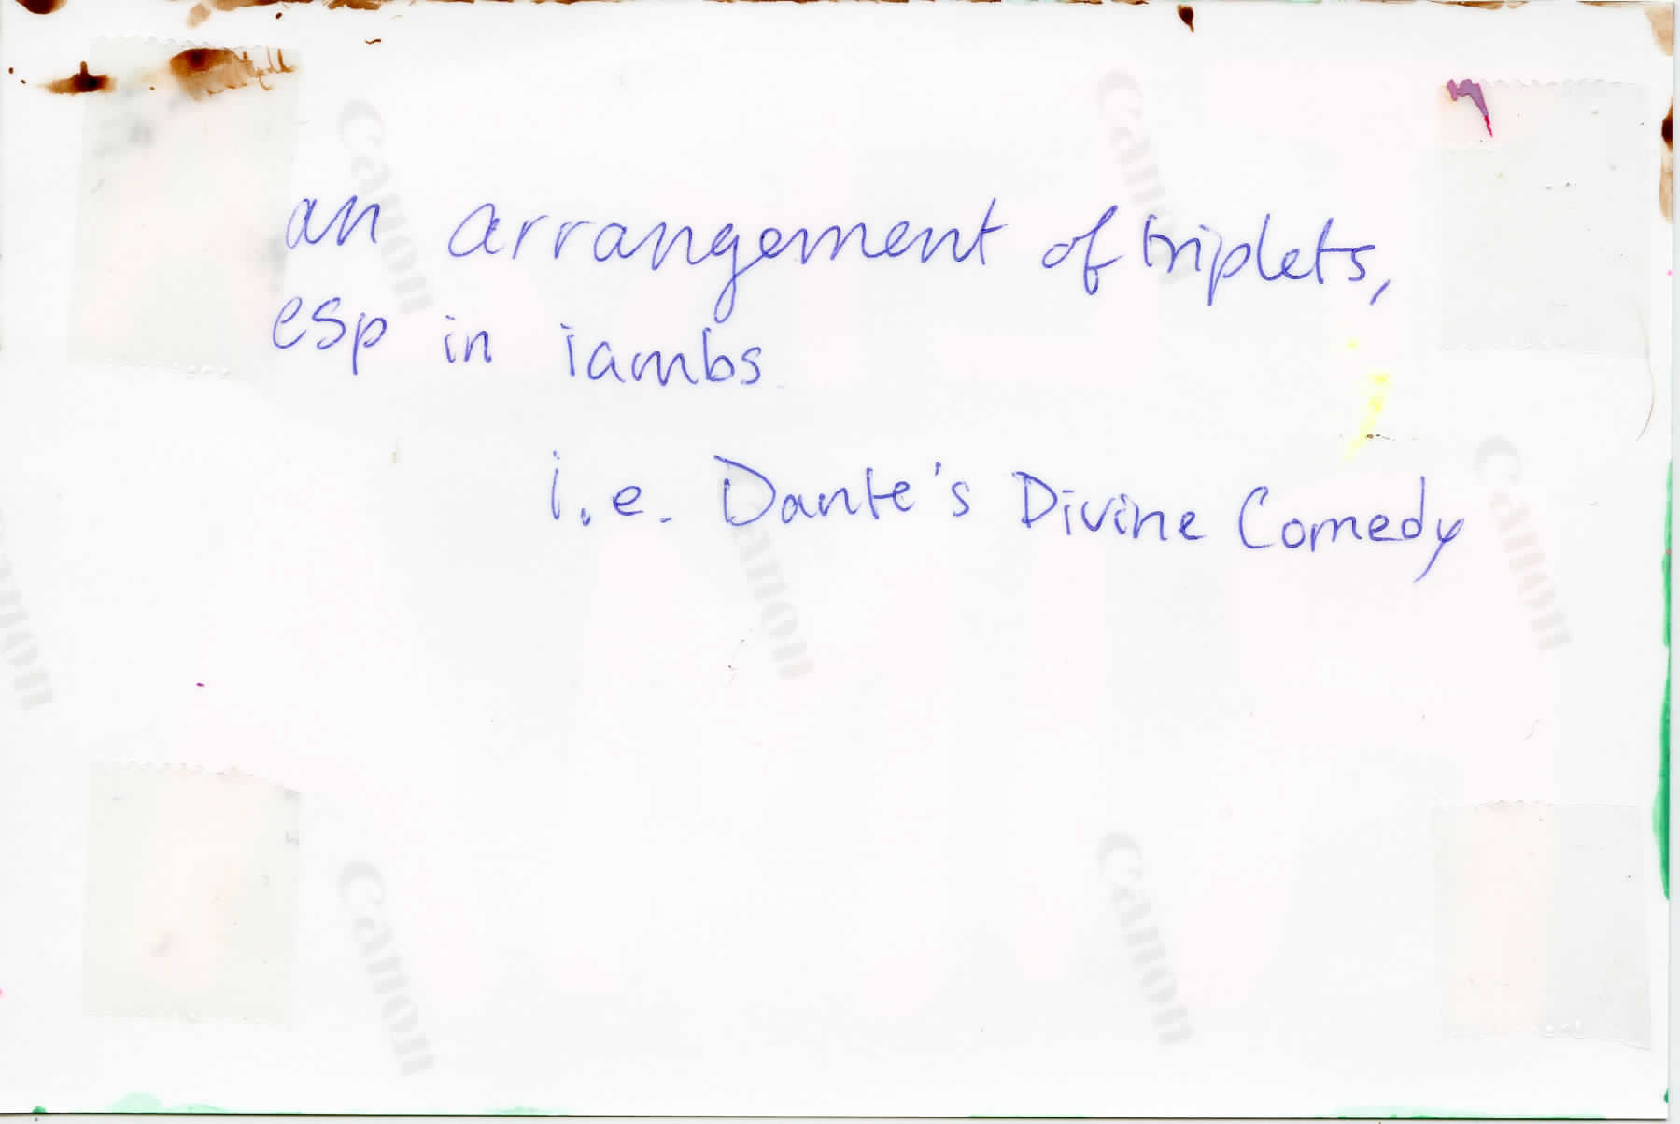 an arrangement of triplets,
esp in iambs
i.e. Dante's Divine Comedy
Canon
Canon
Canon
Canon
Canon
Canon
Canon